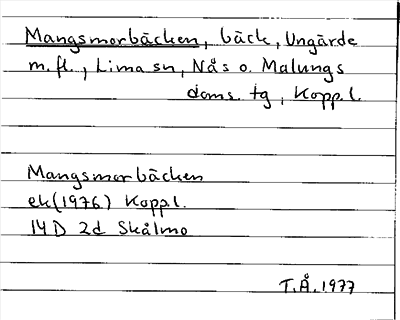 Mangsmorbäcken, bäck, Ungärde
m.fl., Lima sn, Nås o. Malungs
doms. tg, Kopp.l.
Mangsmorbäcken
ek(1976) Koppl.
14D 2d Skålmo
T.Å.1977